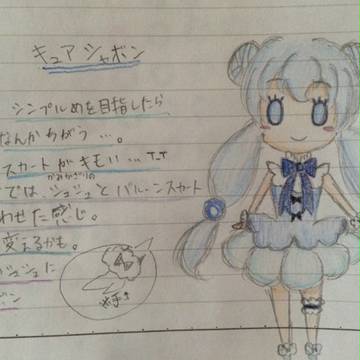 キュア シャボン
シンプルめを目指したら
なんかちがう…。
スカートがキモい…T_T
かみかざりの
では、シュシュとバルーンスカート
わせた感じ。
変えるかも。
シュシュに